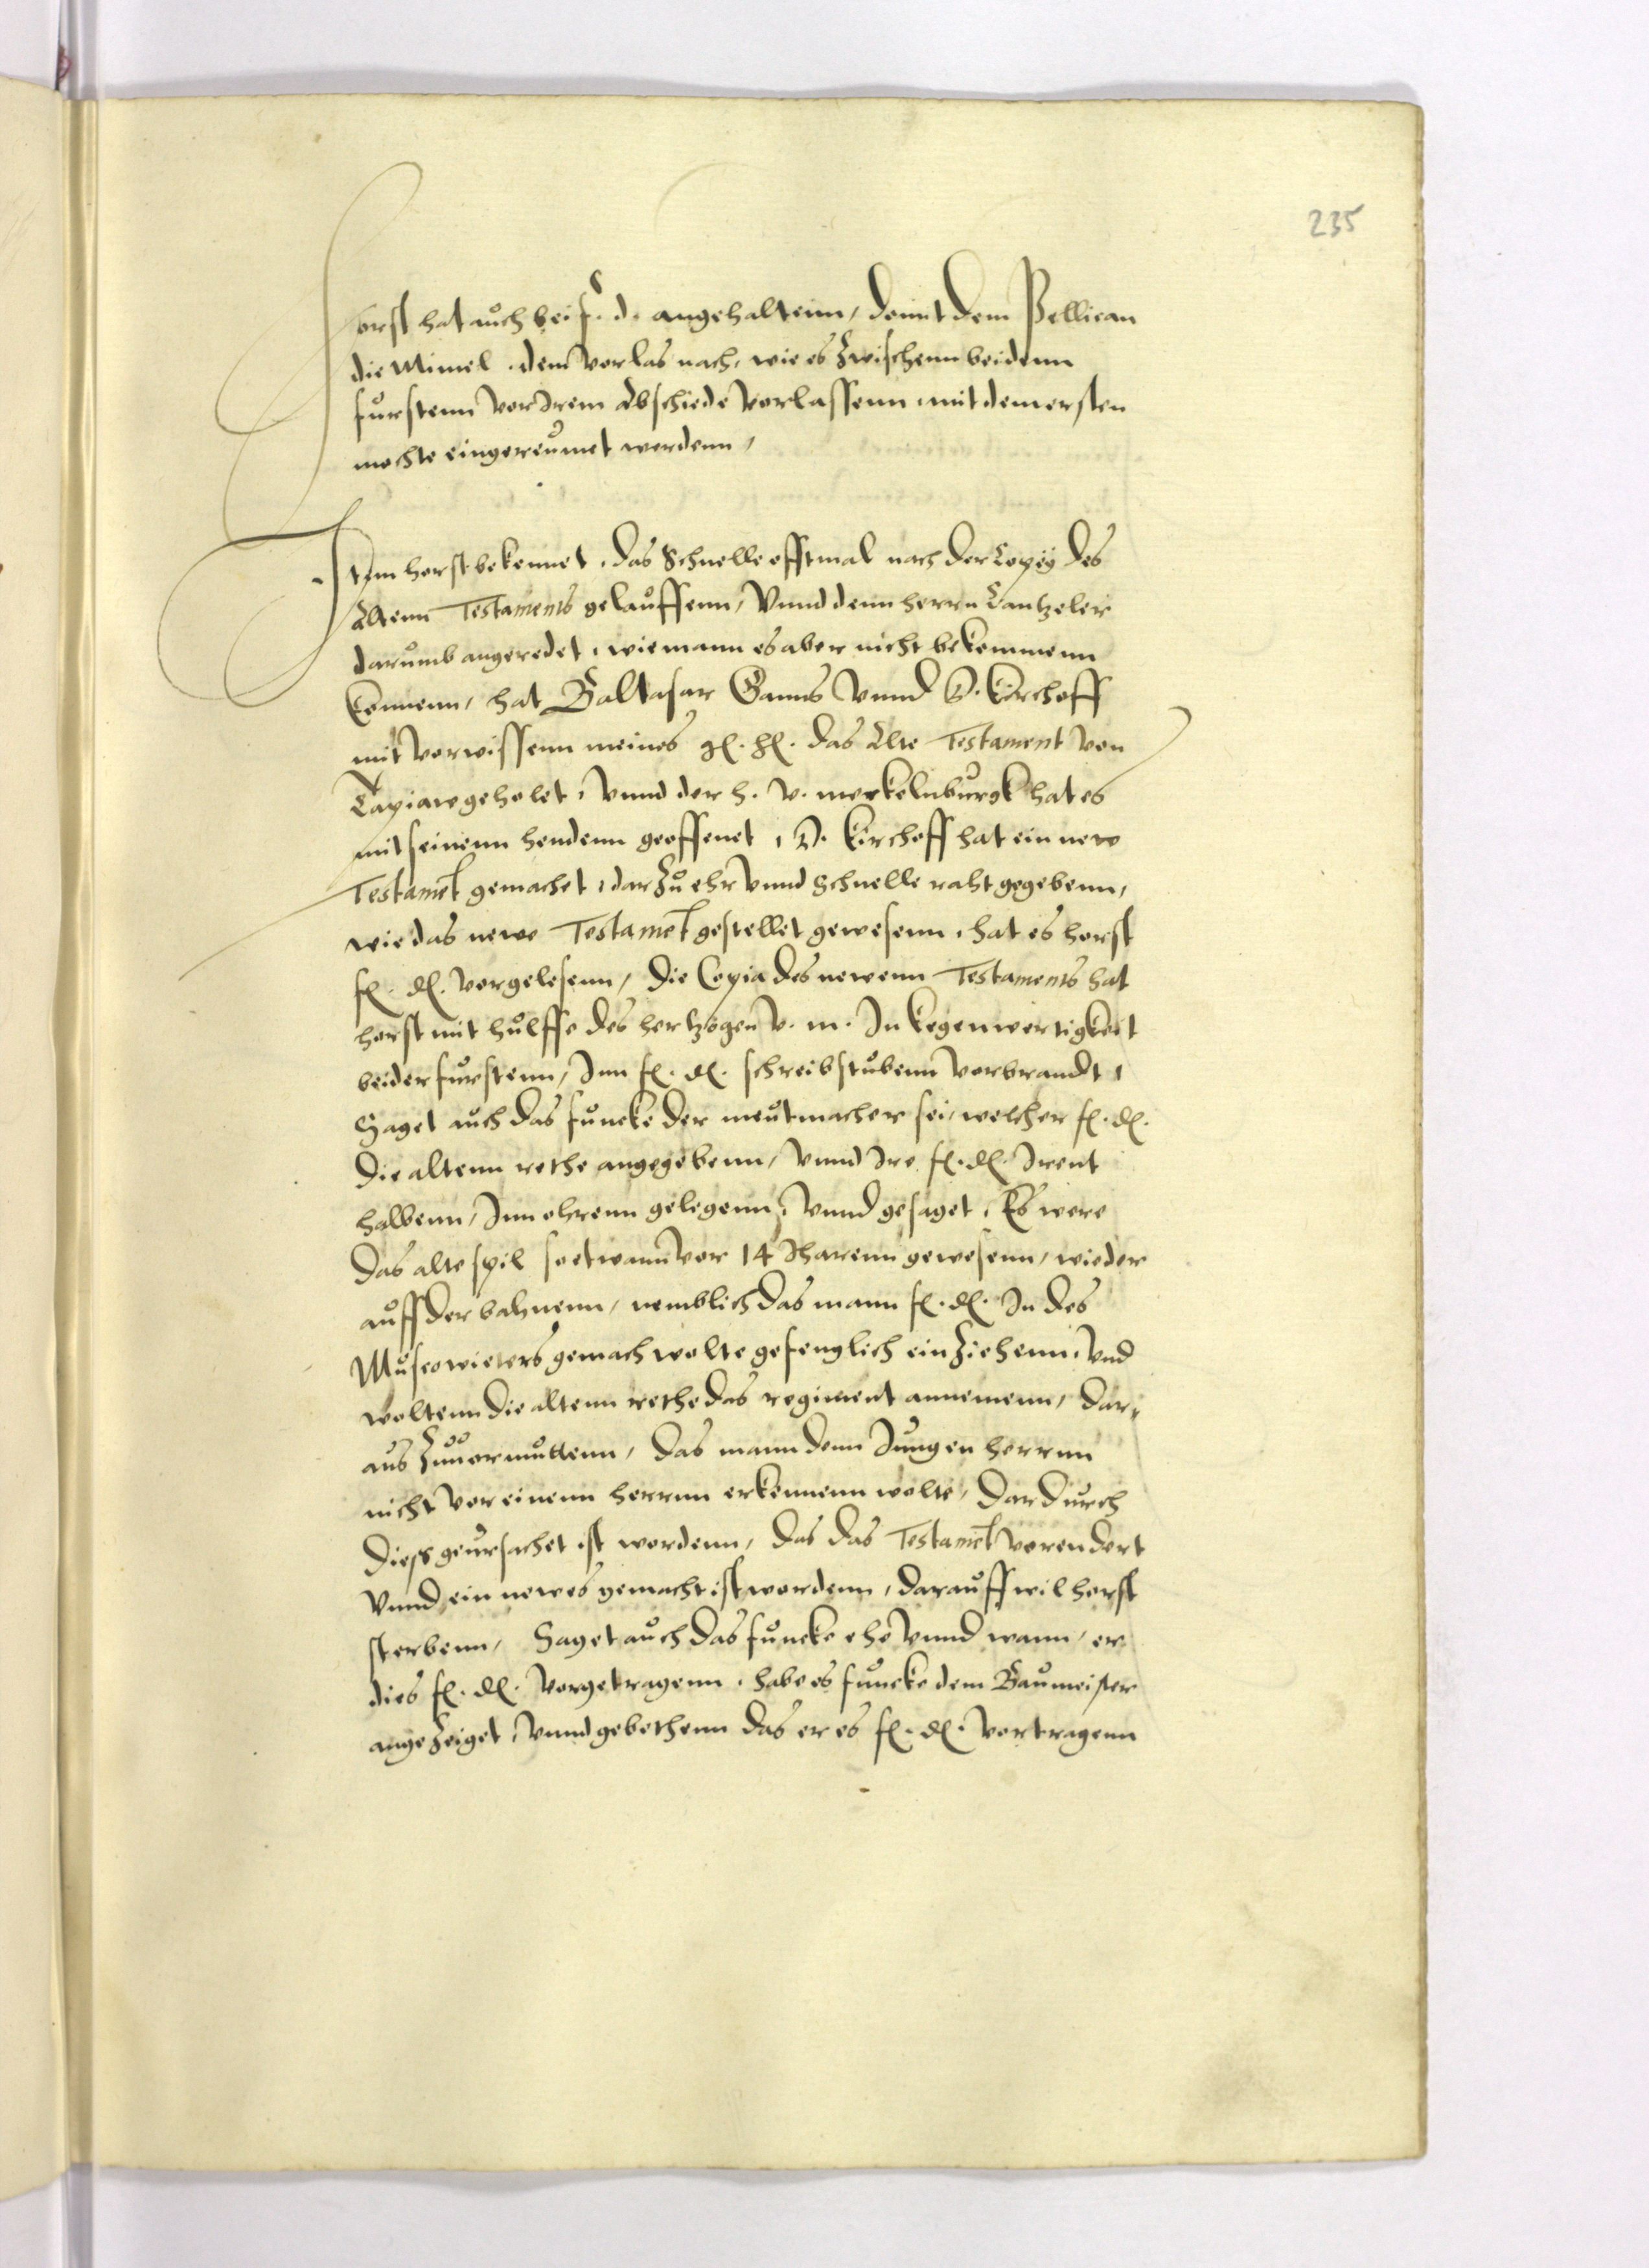 235
Horst hat auch bei f. d. angehaltenn, domit dem Pellican
die Mimel, dem vorlas nach, wie es zwischenn beidenn
furstenn vor Irem Abschiede vorlassenn, mit dem ersten
mochte eingereumet werdenn,
Item horst bekennet, das Schnelle offtmal nach der Copeÿ des
Altenn Testaments gelauffenn, Vnnd denn herrn Cantzeler
darumb angeredet, wie mann es aber nicht bekommenn
konnenn, hat Baltasar Ganns vnnd D. Kirchoff
mit vorwissenn meines gl. hl. das Alte Testament von
Tapiaw geholet, Vnnd der h. v. meckelnburgk hat es
mit seinenn hendenn geoffenet, D. Kirchoff hat ein new
Testamēt gemachet, darzu ehr Vnnd Schnelle raht gegebenn,
wie das newe Testamēt gestellet gewesenn, hat es horst
fl. dl. vorgelesenn, die Copia des newenn Testaments hat
horst mit hulffe des hertzogen v. m. In kegenwertigkeit
beider furstenn, Inn fl. dl. schreibstubenn vorbrandt,
Saget auch das funcke der meutmacher sei, welcher fl. dl.
die altenn rethe angegebenn, vnnd Ire fl. dl. Irent
halbenn, Inn ohrenn gelegenn, vnnd gesaget, Es were
das alte spil so etwann vor 14 Jharenn gewesenn, wieder
auff der bahnenn, nemblich das mann fl. dl. In des
Muscowieters gemach wolte gefenglich einziehenn, vnd
woltenn die altenn rethe das regiment annemenn, dar,
aus zuuormuttenn, das mann denn Jungen herrnn
nicht vor einenn herrnn erkennenn wolte, dardurch
dies geursachet ist wordenn, das das Testamēt vorendert
Vnnd ein newes gemacht ist wordenn, darauff wil horst
sterbenn, Saget auch das funcke ehe vnnd wann, er
dies fl. dl. vorgetragenn, habe es funcke dem Baumeister
angezeiget, vnnd gebethenn das er es fl. dl. vortragenn